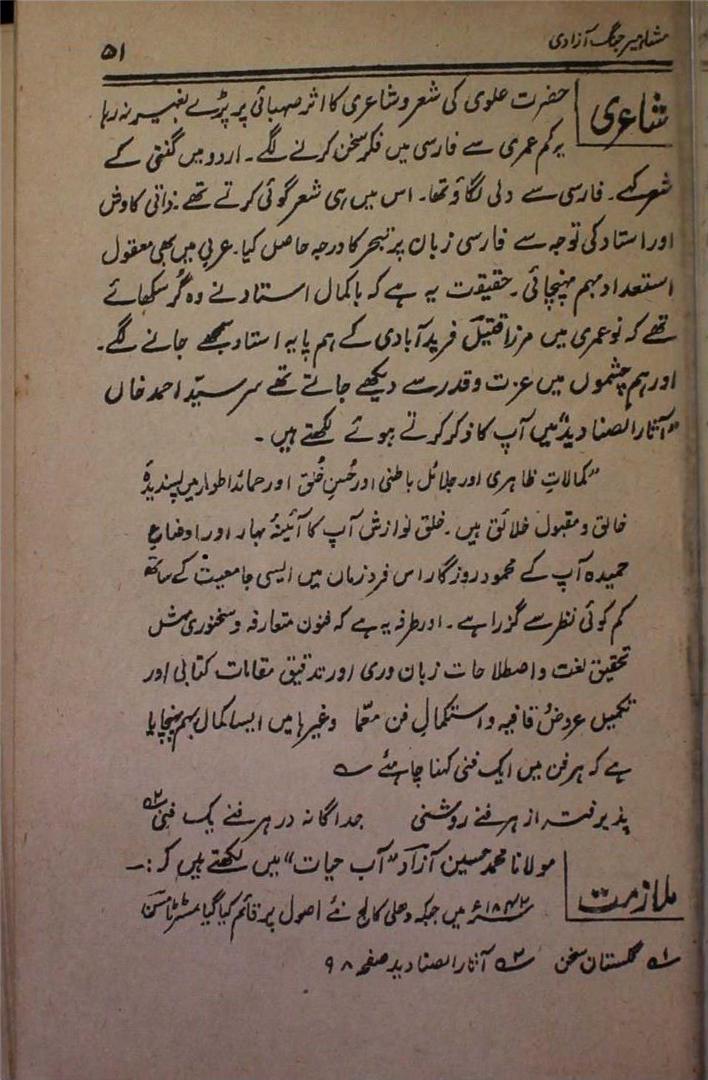 مشاہیر جنگ آزادی
۵۱
شاعری
حضرت علوی کی شعر و شاعری کا اثر صہبائی پر پڑے بغیر نہ رہا
یہ کم عمری سے فارسی میں فکر سخن کرنے لگے۔ اردو میں گنتی کے
شعر کہے۔ فارسی سے دلی لگاؤ تھا۔ اس میں ہی شعر گوئی کرتے تھے۔ ذاتی کاوش
اور استاد کی توجہ سے فارسی زبان پر تبحر کا درجہ حاصل کیا۔ عربی میں بھی معقول
استعداد بہم پہنچائی۔ حقیقت یہ ہے کہ باکمال استاد نے وہ گُر سکھائے
تھے کہ نو عمری میں مرزا قتیل فرید آبادی کے ہم پایہ استاد سمجھے جانے لگے۔
اور ہم چشموں میں عزت و قدر سے دیکھے جاتے تھے سر سیّد احمد خاں
”آثار الصنادید“ میں آپ کا ذکر کرتے ہوئے لکھتے ہیں۔
”کمالاتِ ظاہری اور جلائل باطنی اور حُسنِ خُلق اور حمائد اطوار میں پسندیدۂ
خالق و مقبول خلائق ہیں۔ خلق نوازش آپ کا آئینۂ بہار اور اوضاعِ
حمیدہ آپ کے محمود روزگار اس فرد زماں میں ایسی جامعیت کے ساتھ
کم کوئی نظر سے گزرا ہے۔ اور طرفہ یہ ہے کہ فنون متعارفہ و سخنوری مثل
تحقیق لغت و اصطلاحات زبان وری اور تدقیق مقامات کتابی اور
تکمیل عروض قافیہ و استکمالِ فن معمّا وغیرہا میں ایسا کمال بہم پہنچایا
ہے کہ ہر فن میں ایک فنی کہنا چاہئے ؎
پذیرفتہ از ہر فنے روشنی جداگانہ در ہر فنے یک فنی ۲؎
ملازمت
مولانا محمد حسین آزاد ”آب حیات“ میں لکھتے ہیں کہ :۔
۱۸۴۲ء میں جبکہ دہلی کالج نئے اصول پر قائم کیا گیا مسٹر ٹامسن
۱؎ گلستان سخن ۲؎ آثار الصنادید صفحہ ۹۸